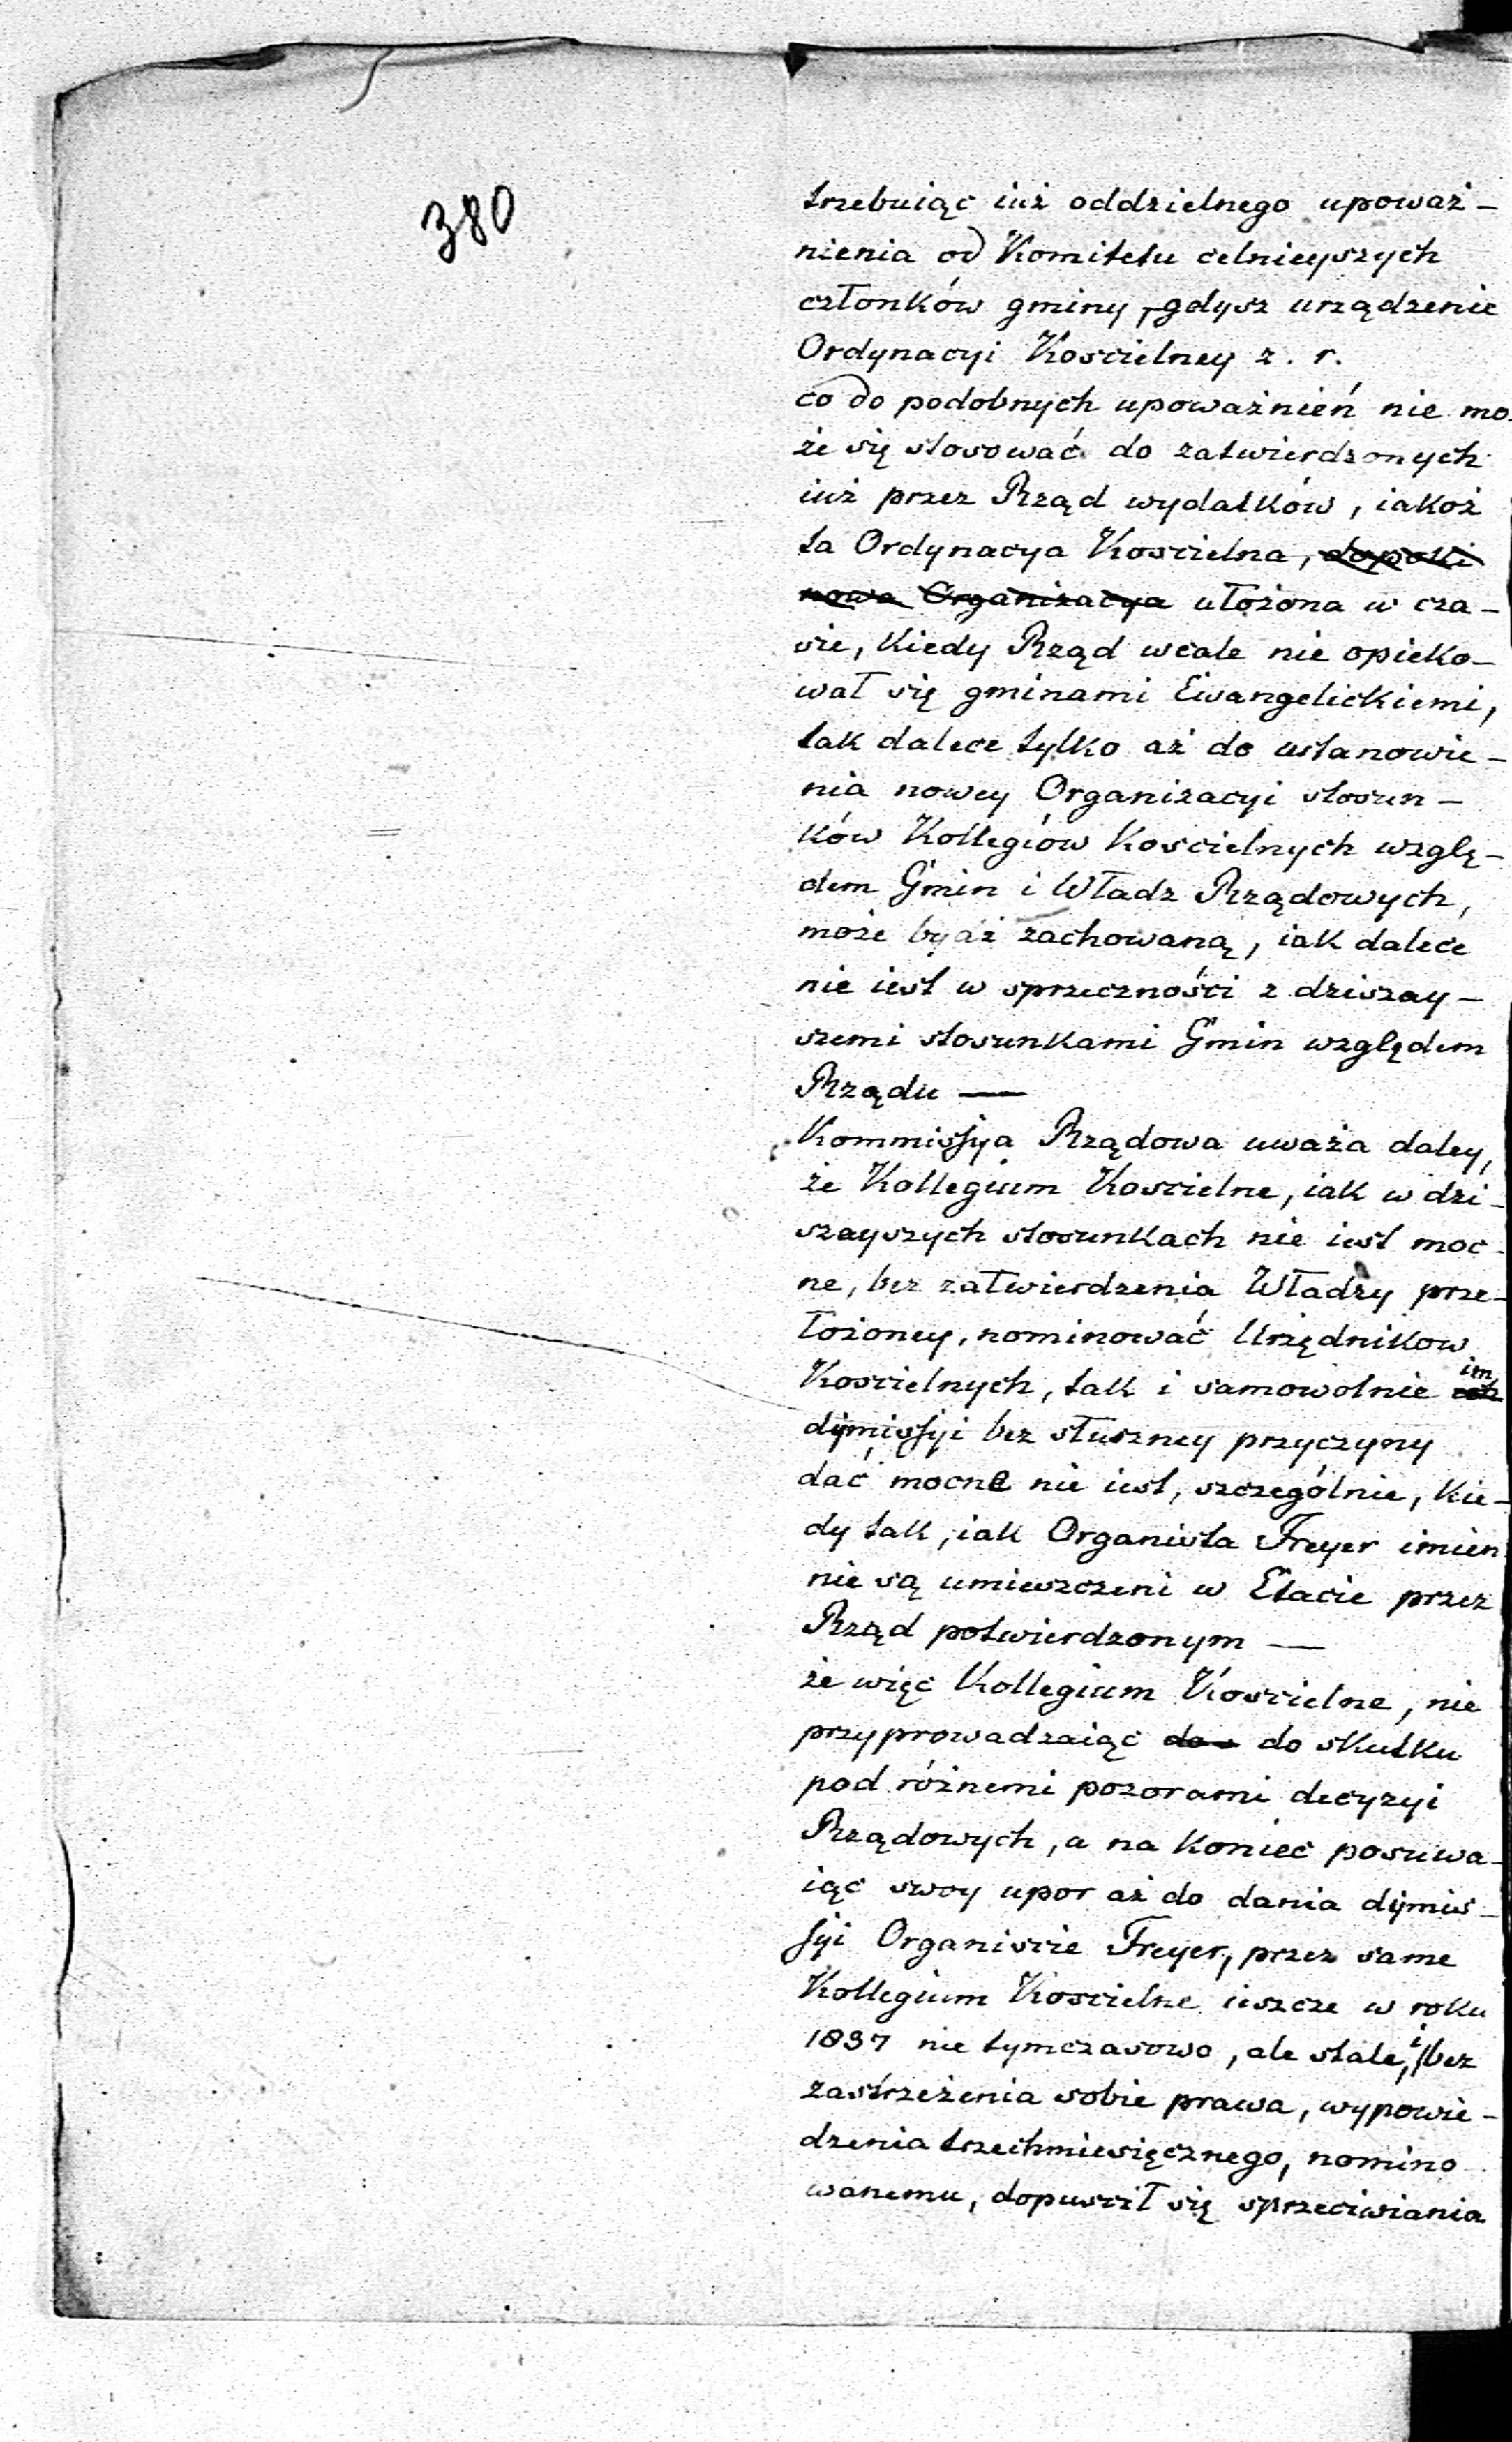 380
trzebuiąc iuż oddzielnego upoważ-
nienia od Komitetu celnieyszych
członków gminy, gdysz urządzenie
Ordynacyi Koscielney z. r.
co do podobnych upoważnień nie mo-
że się stosować do zatwierdzonych
iuż przez Rząd wydatków, iakoż
ta Ordynacya Koscielna, dopoki
nowa Organizacya ułożona w cza-
sie, kiedy Rząd wcale nie opieko-
wał się gminami Ewangelickiemi,
tak dalece tylko aż do ustanowie-
nia nowey Organizacyi stosun-
ków Kollegiów Koscielnych wzglę-
dem Gmin i Władz Rządowych,
może zachowaną, iak dalece
nie iest w sprzeczności z dziszay-
szemi stosunkami Gmin względem
Rządu —
Kommissya Rządowa uważa daley,
że Kollegium Koscielne, iak w dzi-
szayszych stosunkach nie iest moc-
ne, bez zatwierdzenia Władzy prze-
łożoney, nominować Urzędnikow
Koscielnych, tak i samowolnie im
dymissyi bez słuszney przyczyny
dać mocne nie iest, szczególnie, kie-
dy tak, iak Organista Freyer imien
nie są umieszczeni w Etacie przez
Rząd potwierdzonym —
że więc Kollegium Koscielne, nie
przyprowadzaiąc do skutku
pod różnemi pozorami decyzyi
Rządowych, a na koniec posuwa-
iąc swoy upor aż do dania dymis-
syi Organiscie Freyer, przez same
Kollegium Koscielne ieszcze w roku
1837 nie tymczasowo, ale stale, i bez
zastrzeżenia sobie prawa, wypowie-
dzenia trzechmiesięcznego, nomino
wanemu, dopuscił się sprzeciwiania